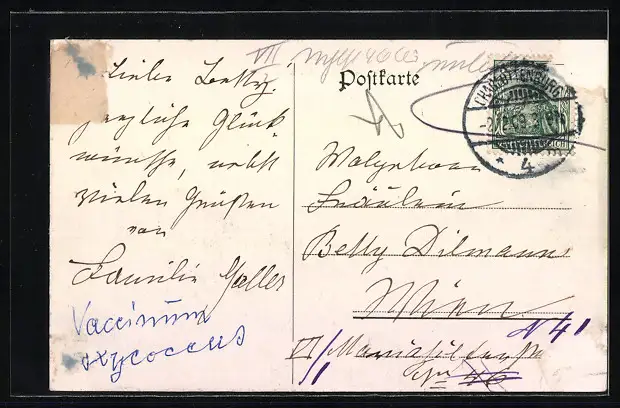 Lieber Betty.
herzliche Glück-
wünsche, nebst
vielen Grüßen
von
Familie Galles
Vaccinium
oxycoccus
VII
Postkarte
CHARLOTTENBURG
4
Wolgeboren
Fräulein
Betty Dilmann
Wien
N 41
VI/1 Mariahilferstraße
No 46